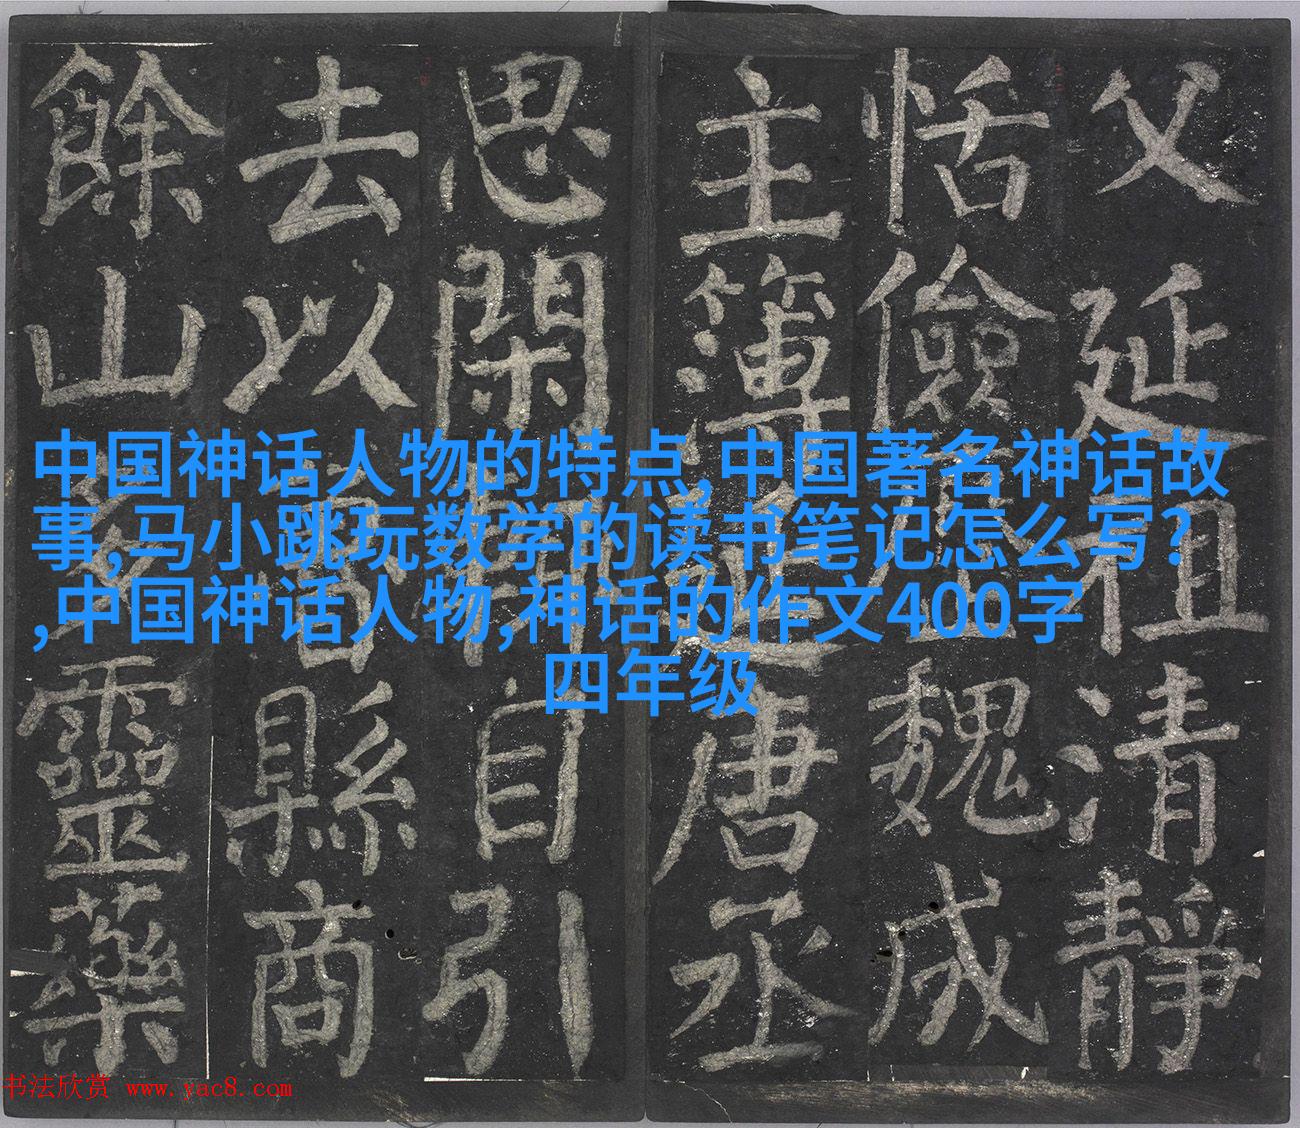 父延祖清靜
恬儉魏成
主簿唐丞
思閑自引
去以縣商
餘山靈藥
中国神话人物的特点,中国著名神话故
事,马小跳玩数学的读书笔记怎么写?
,中国神话人物,神话的作文400字
四年级
书法欣赏 www.yac8.com